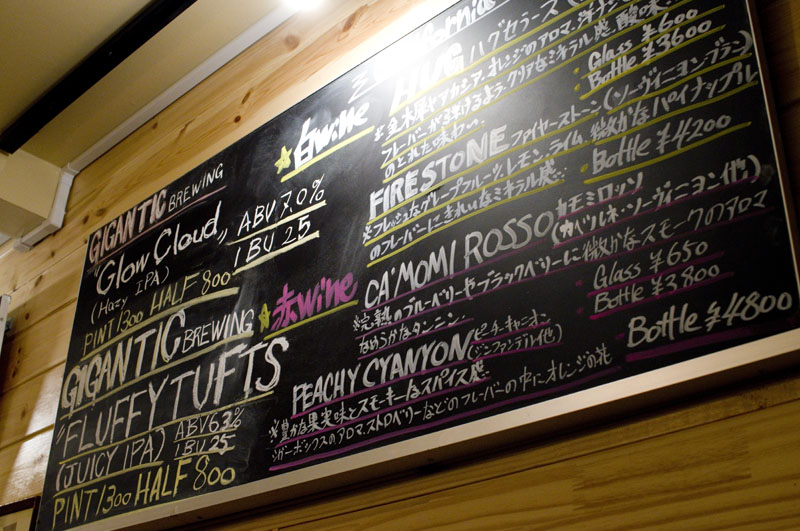 GIGANTIC BREWING
"Glow Cloud"
(Hazy IPA)
ABV 7.0%
IBU 25
PINT 1300 HALF 800
GIGANTIC BREWING
"FLUFFY TUFTS
(JUICY IPA)
ABV 6.3%
IBU 25
PINT 1300 HALF 800
☆白wine
ハグセラーズ
フレーバーが弾けるよう。クリアなミネラル感、酸味、
のとれた味わい。
・Glass ¥600
・Bottle ¥3600
FIRESTONE ファイヤーストーン(ソーヴィニヨンブラン)
※フレッシュなグレープフルーツ、レモン、ライム、微かなパイナップル
のフレーバーにきれいなミネラル感。
・Bottle ¥4200
☆赤wine
CA'MOMI ROSSO カモミロッソ
(カベルネ・ソーヴィニヨン他)
※完熟のブルーベリーやブラックベリーに微かなスモークのアロマ
なめらかなタンニン。
・Glass ¥650
・Bottle ¥3800
PEACHY CYANYON ピーチーキャニオン
(ジンファンデル他)
※豊かな果実味とスモーキーなスパイス感
シガーボックスのアロマ、ストロベリーなどのフレーバーの中にオレンジの花
Bottle ¥4800